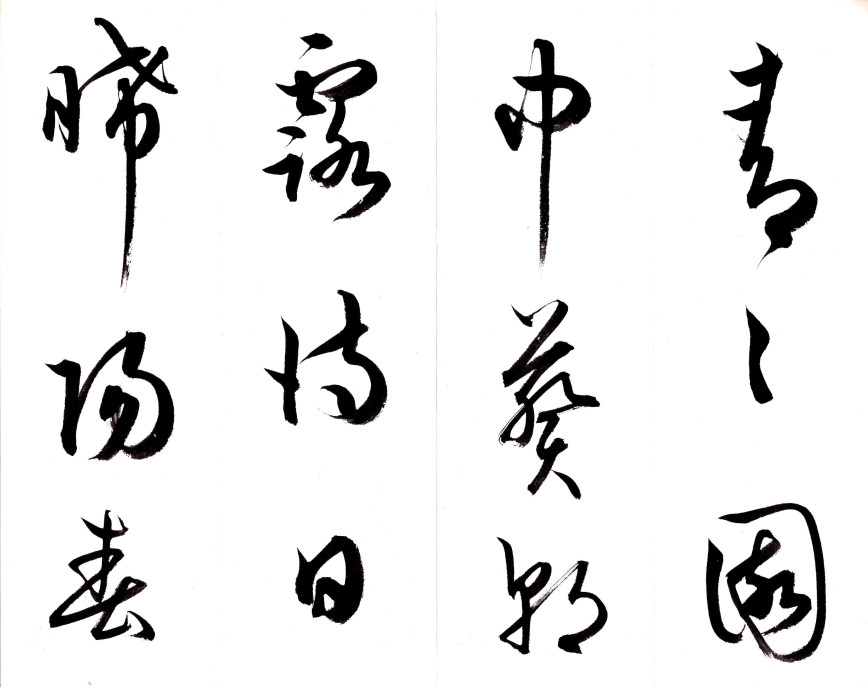 青々園
中葵朝
露待日
晞陽春